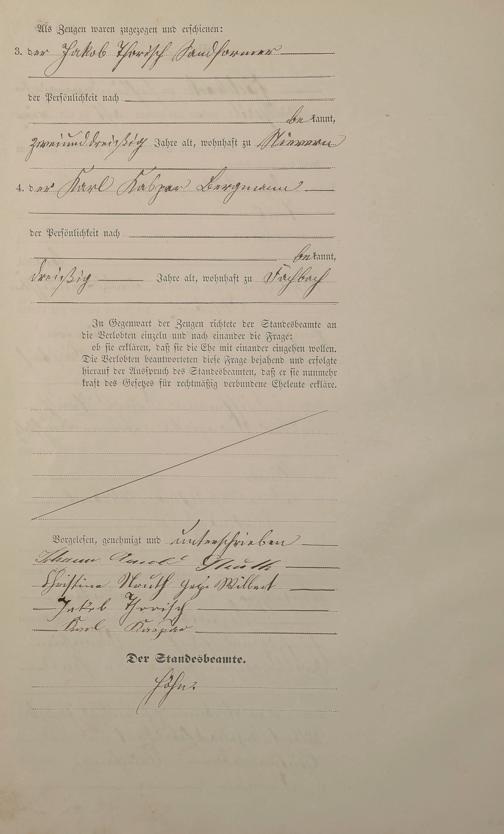 Als Zeugen waren zugezogen und erschienen:
3. der Jakob Thorisch Sandformer
der Persönlichkeit nach
bekannt,
zweiunddreißig Jahre alt, wohnhaft zu Nievern
4. der Karl Kaspar Bergmann
der Persönlichkeit nach
bekannt,
dreißig Jahre alt, wohnhaft zu Fachbach
In Gegenwart der Zeugen richtete der Standesbeamte an
die Verlobten einzeln und nach einander die Frage:
ob sie erklären, daß sie die Ehe mit einander eingehen wollen.
Die Verlobten beantworteten diese Frage bejahend und erfolgte
hierauf der Ausspruch des Standesbeamten, daß er sie nunmehr
kraft des Gesetzes für rechtmäßig verbundene Eheleute erkläre.
Vorgelesen, genehmigt und unterschrieben
Johann
Christine Wilbert
Jakob Thorisch
Karl Kaspar
Der Standesbeamte.
Höhn